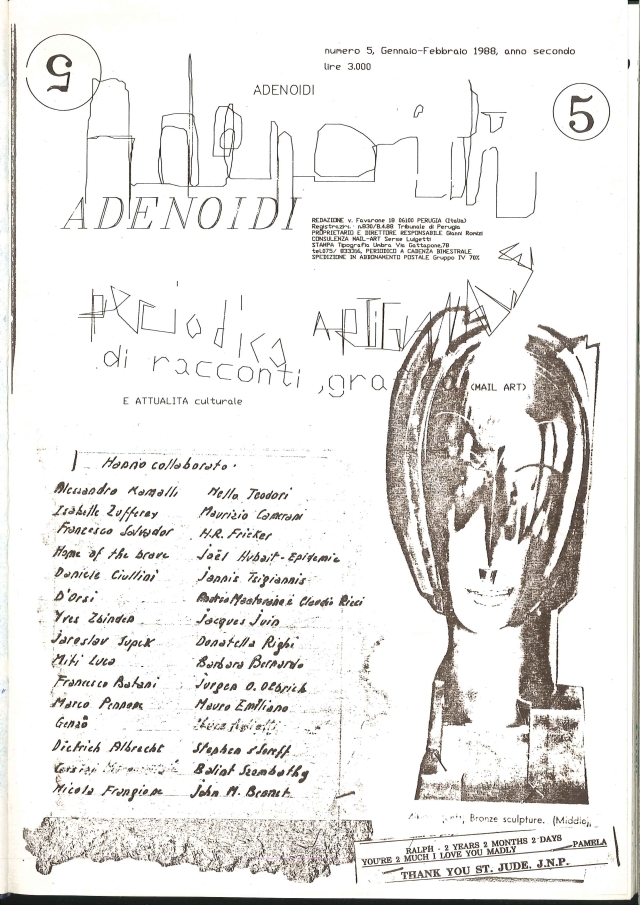 numero 5, Gennaio-Febbraio 1988, anno secondo
lire 3.000
5
ADENOIDI
5
Adenoidi
ADENOIDI
REDAZIONE v. Favarone 18 06100 PERUGIA (Italia)
Registrazni. n.830/8.4.88 Tribunale di Perugia
PROPRIETARIO E DIRETTORE RESPONSABILE Gianni Romas
CONSULENZA MAIL-ART Serse Luigetti
STAMPA Tipografia Umbra Via Gattapone,78
tel.075/ 833356, PERIODICO A CADENZA BIMESTRALE
SPEDIZIONE IN ABBONAMENTO POSTALE Gruppo IV 70%
periodica ARTIGIANALE
di racconti ,grafica (MAIL ART)
E ATTUALITA culturale
Hanno collaborato.
Alessandro Ramalli Nello Teodori
Isabelle Zufferey Maurizio Camerani
Francesco Salvador H.R. Fricker
Home of the brave Joël Hubait-Epidemic
Daniele Ciullini Jannis Tsigiannis
D'Orsi Claudio Ricci
Yves Zbinden Jacques Juin
Jaroslav Supek Donatella Righi
Miti Luca Barbara Bernardo
Francesco Batani Jurgen O. Olbrich
Marco Pennone Mauro Emiliano
Genzo
Dietrich Albrecht Stephen
Balint Szombathy
Nicola Frangione John M. Bennet
Bronze sculpture. (Middle,
RALPH - 2 YEARS 2 MONTHS 2 DAYS
YOU'RE 2 MUCH I LOVE YOU MADLY PAMELA
THANK YOU ST. JUDE, J.N.P.